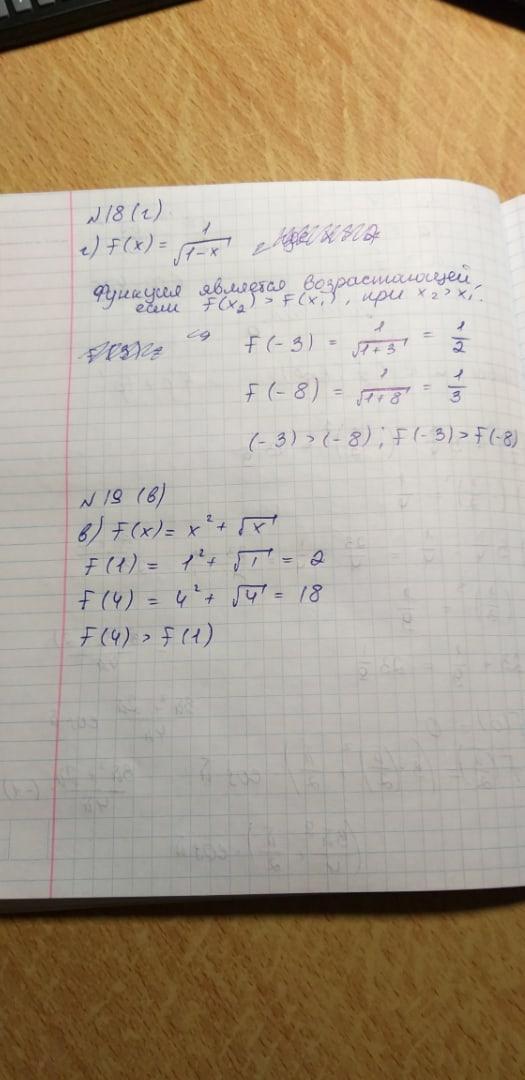 №18 (г)
г) f(x) = 1/√(1-x)
Функция является возрастающей,
если f(x₂) > f(x₁), при x₂ > x₁.
f(-3) = 1/√(1+3) = 1/2
f(-8) = 1/√(1+8) = 1/3
(-3) > (-8); f(-3) > f(-8)
№19 (в)
в) f(x) = x² + √x
f(1) = 1² + √1 = 2
f(4) = 4² + √4 = 18
f(4) > f(1)